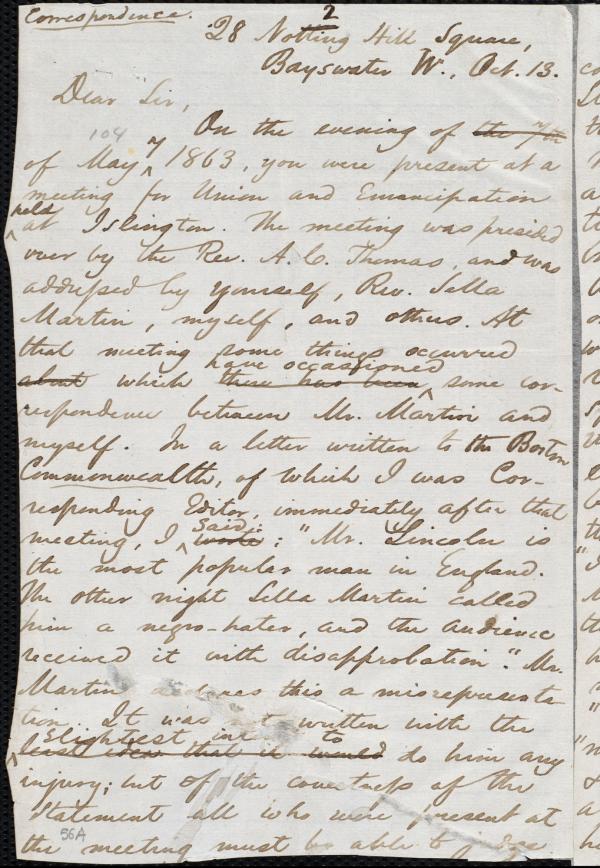 Correspondence.
2
28 Notting Hill Square,
Bayswater W., Oct. 13.
Dear Sir,
104
On the evening of the 7th
of May 7 1863, you were present at a
meeting for Union and Emancipation
held
at Islington. The meeting was presided
over by the Rev. A. C. Thomas, and was
addressed by yourself, Rev. Sella
Martin, myself, and others. At
that meeting some things occurred
have occasioned
about which there has been some cor-
respondence between Mr. Martin and
myself. In a letter written to the Boston
Commonwealth, of which I was Cor-
responding Editor, immediately after that
said:
meeting, I wrote: "Mr. Lincoln is
the most popular man in England.
The other night Sella Martin called
him a negro-hater, and the audience
received it with disapprobation." Mr.
Martin declares this a misrepresenta-
tion. It was not written with the
slightest to
least idea that it would do him any
injury; but of the correctness of the
statement all who were present at
56A
the meeting must be able to judge